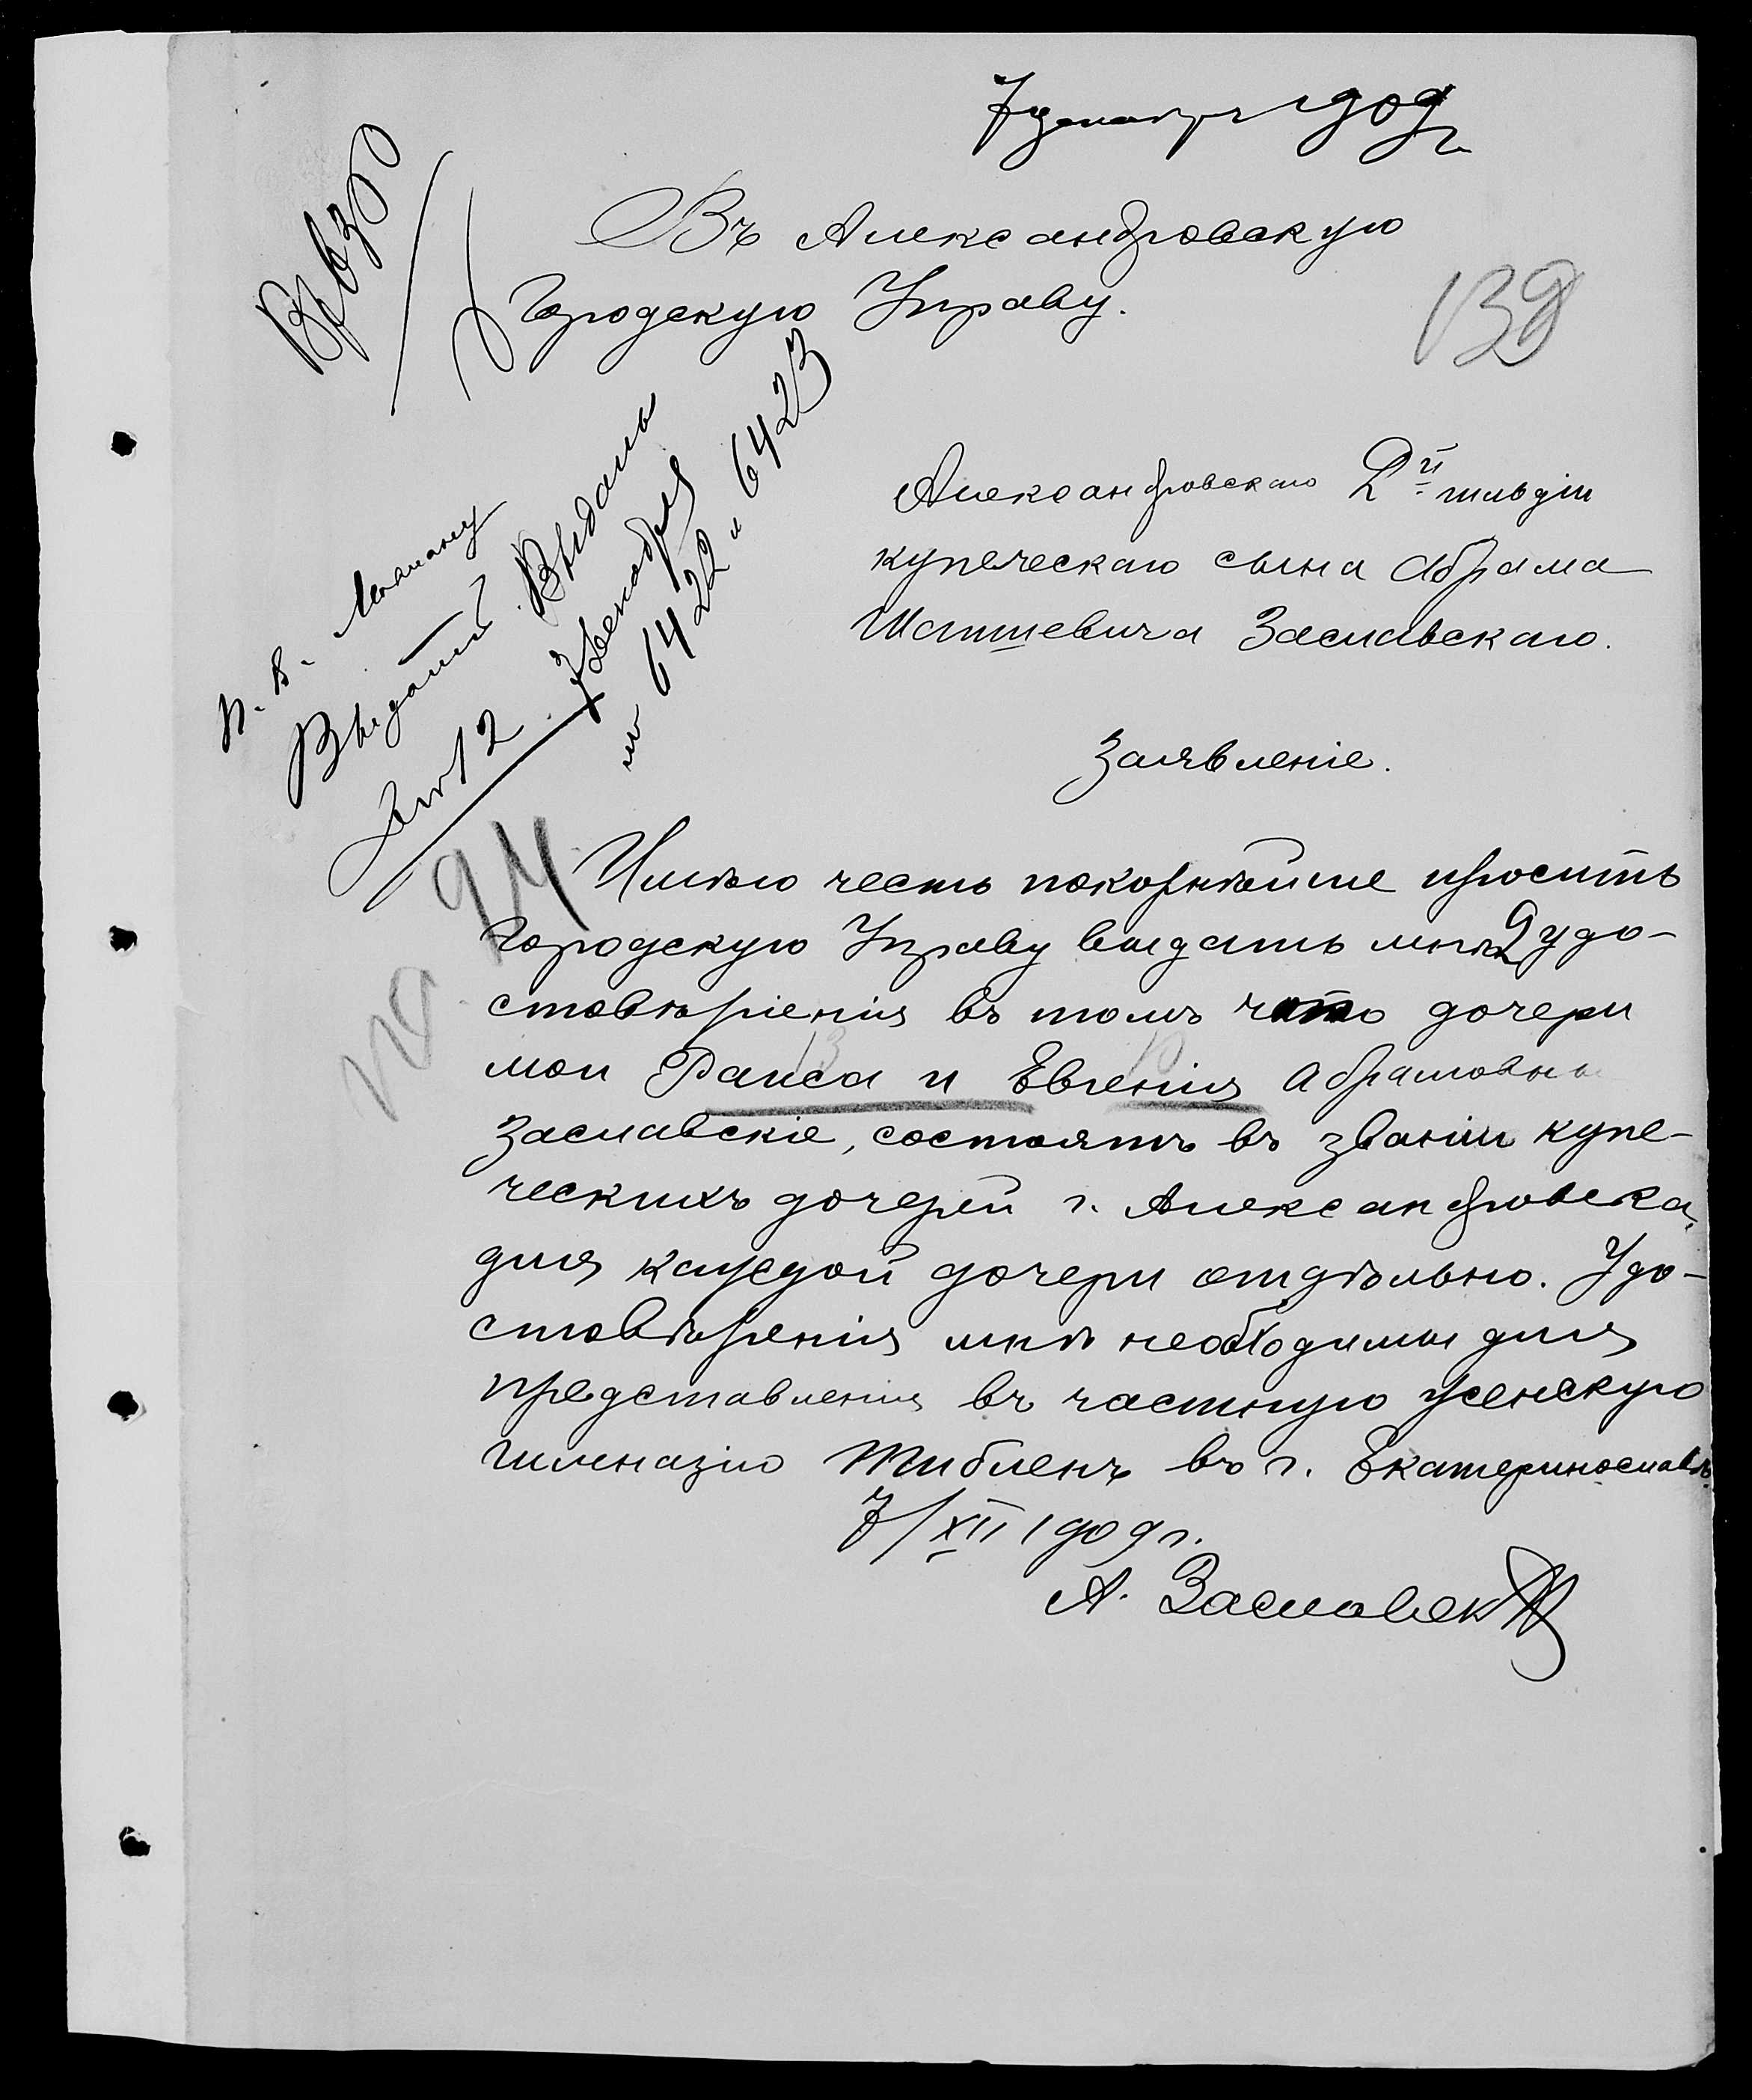 7 декабря 1909 г.
Въ Александровскую
Городскую Управу.
139
Александровскаго 2й гильдіи
купеческаго сына Абрама
Шатшевича Заславскаго.
Выдать
Выданы
7 декабря
№ 6422 и 6423
Л 12
на 94
Заявленіе.
Имѣю честь покорнѣйше просить
Городскую Управу выдать мнѣ 2 удо-
стовѣренія въ томъ что дочери
мои Раиса и Евгенія Абрамовны
Заславскіе, состоятъ въ званіи купе-
ческихъ дочерей г. Александровска,
для каждой дочери отдѣльно. Удо-
стовѣренія мнѣ необходимы для
представленія въ частную женскую
гимназію Тибленъ въ г. Екатеринославѣ.
7/XII 1909 г.
А. Заславскій